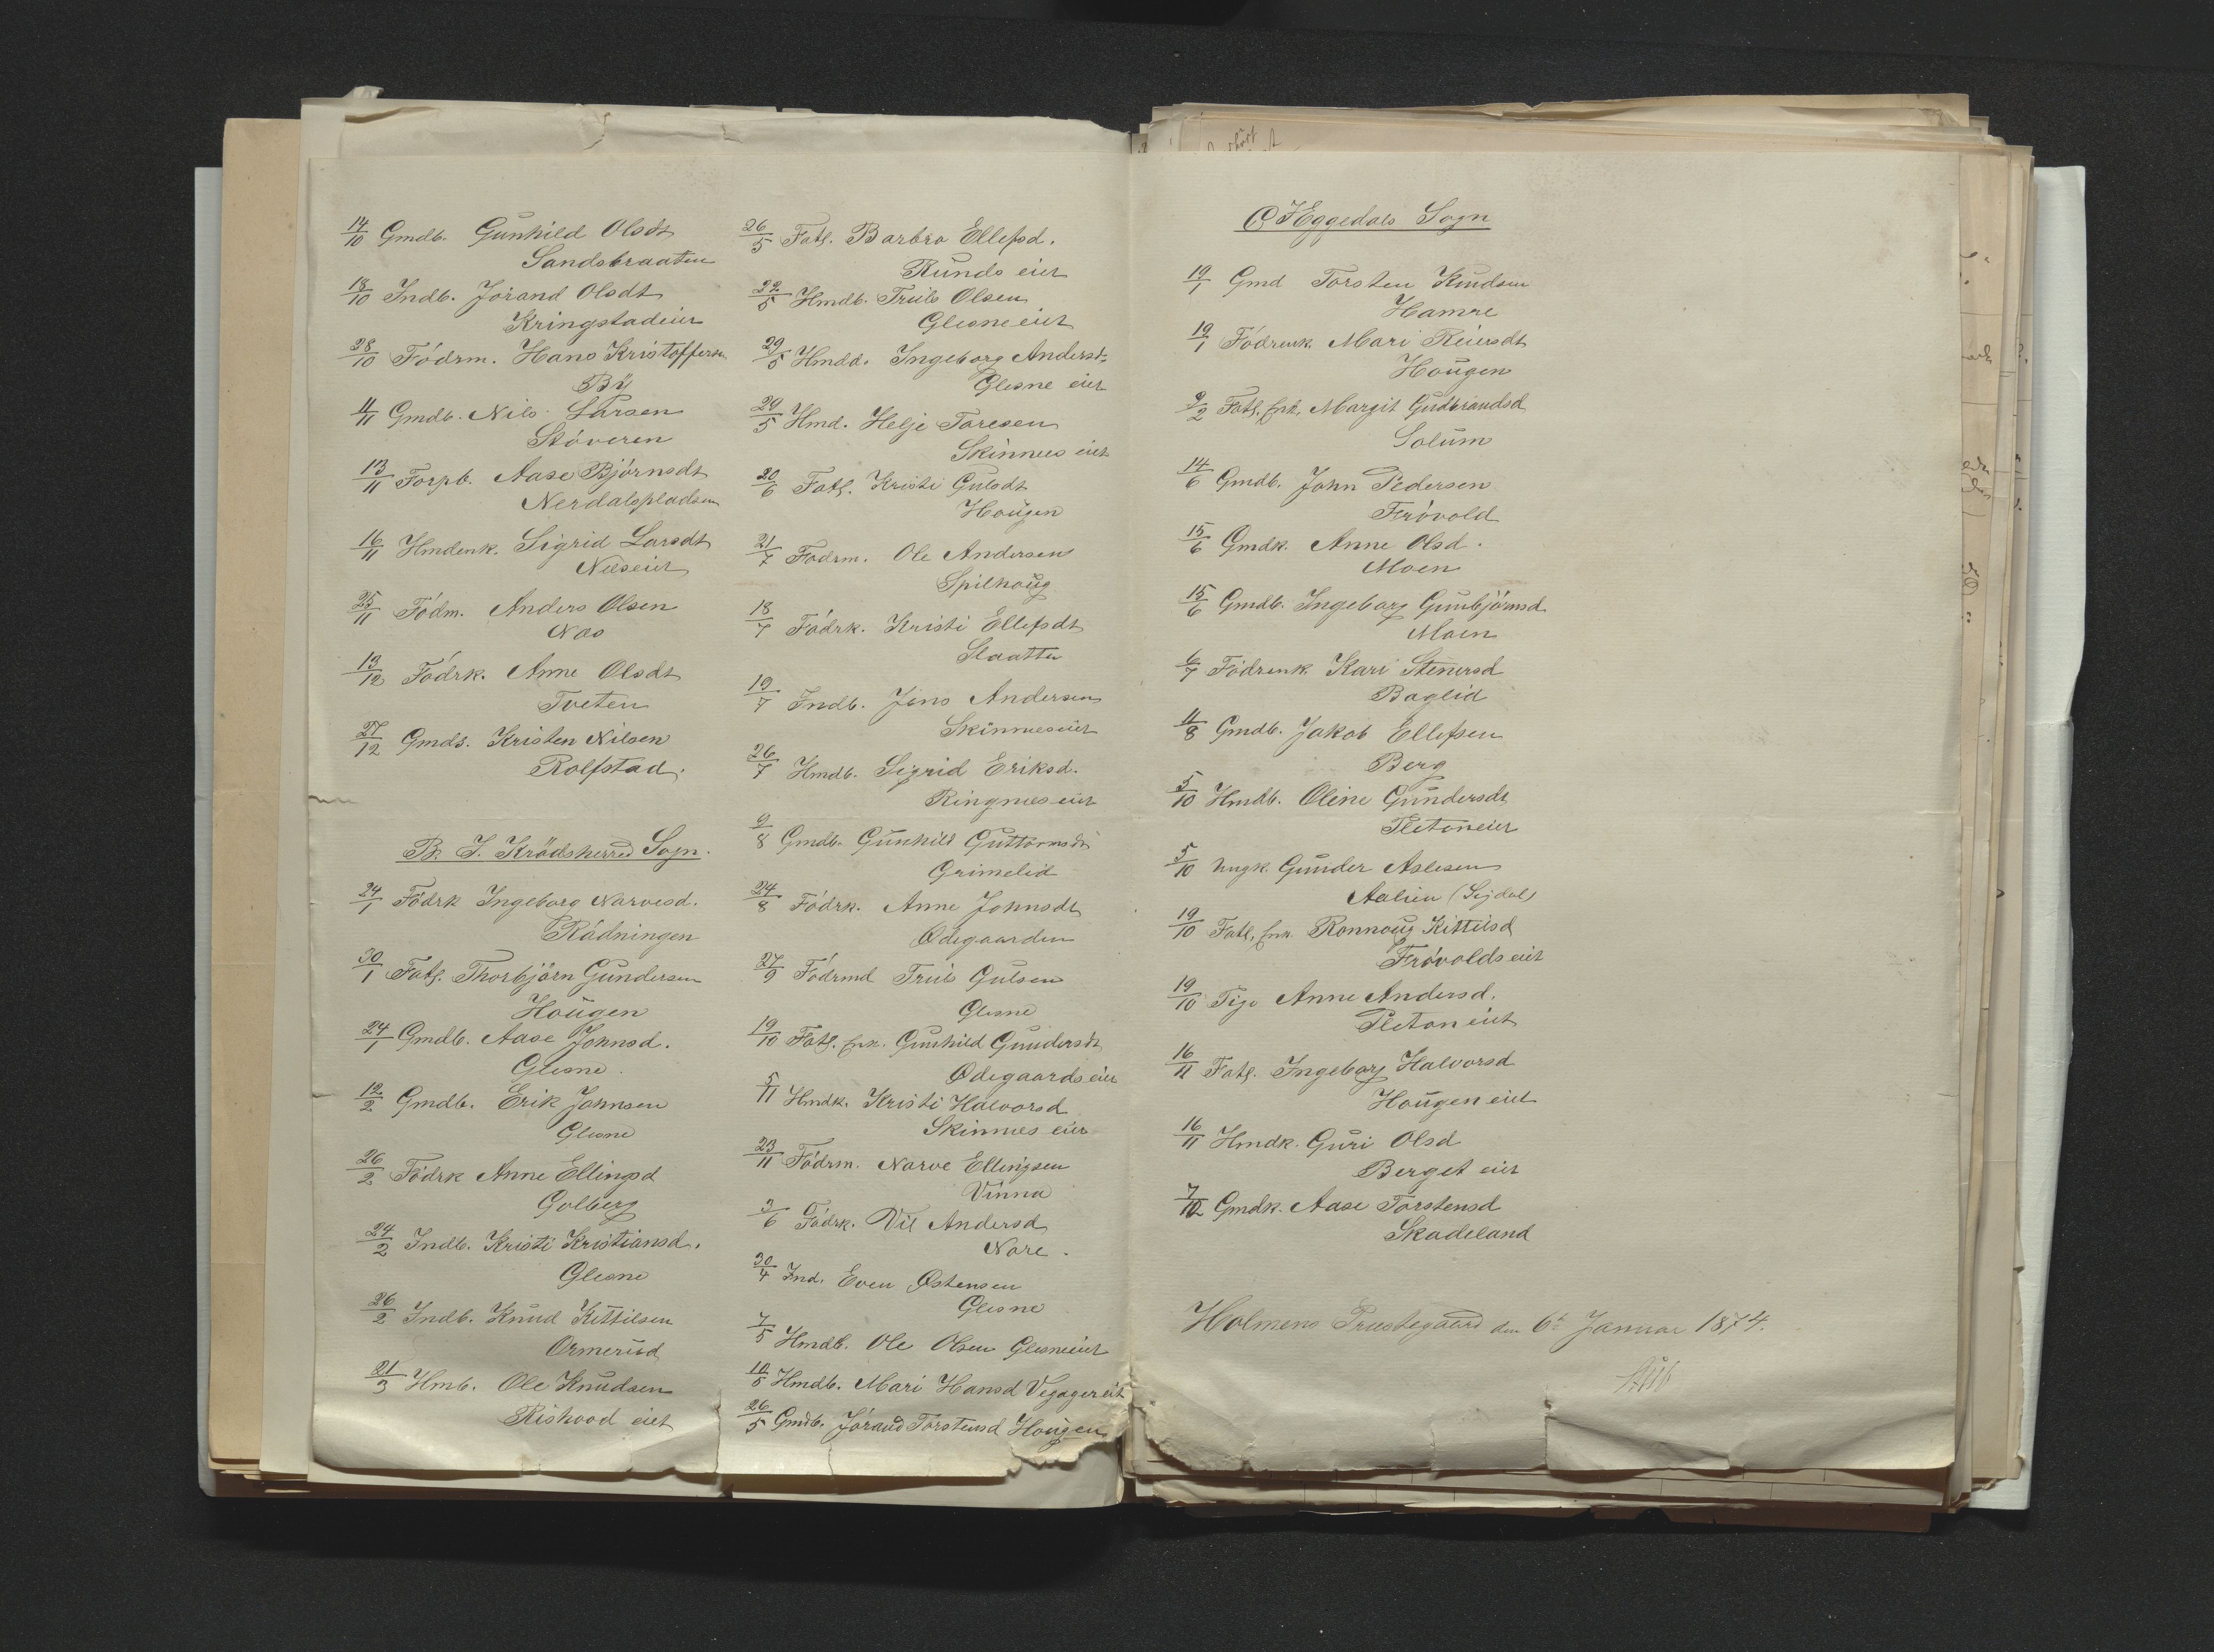 14/10 Gmdb. Gunhild Olsdt
Sandsbraaten
18/10 Indb. Jörand Olsdt
Kringstadeier
28/10 Födrm. Hans Kristoffersen
By
4/11 Gmdb. Nils Larsen
Stöveren
13/11 Forpb. Aase Björnsdt
Nerdalspladsen
16/11 Hmdenk. Sigrid Larsdt
Næseier
25/11 Födm. Anders Olsen
Nas
13/12 Födrk. Anne Olsdt
Tveten
27/12 Gmds. Kristen Nilsen
Rolfstad.
B. I. Krödsherred Sogn.
24/1 Födrk Ingeborg Narvesd.
Rådningen
30/1 Fatg. Thorbjörn Gundersen
Hougen
24/1 Gmdb. Aase Johnsd.
Glesne.
12/2 Gmdb. Erik Johnsen
Glesne
26/2 Födrk Anne Ellingsd
Golberg
24/2 Indb. Kristi Kristiansd.
Glesne
26/2 Indb. Knud Kittilsen
Ormerud
21/3 Hmb. Ole Knudsen
Rishovd eiet
26/5 Fatg. Barbro Ellefsd.
Runds eier
22/5 Hmdb. Truls Olsen
Glesne eiet
29/5 Hmdd. Ingeborg Andersd
Glesne eier
29/5 Hmd. Helje Toresen
Skinnes eiet
20/6 Fatg. Kristi Gulsdt
Hougen
21/7 Födrm. Ole Andersen
Spilhoug
18/7 Födrk. Kristi Ellefsdt
Slaatta
19/7 Indb. Jens Andersen
Skinneseier
26/7 Hmdb. Sigrid Eriksd.
Ringneseier
9/8 Gmdb. Gunhild Guttormsdt
Grimelid
24/8 Födrk. Anne Johnsdt
Ødegaarden
27/9 Födrmd Truls Gulsen
Glesne
19/10 Fatg. Enk. Gunhild Gundersdt
Ødegaards eier
5/11 Hmdk. Kristi Halvorsd
Skinnes eier
23/11 Födrm. Narve Ellingsen
Vinna
3/6 Födrk. Vil Andersd
Nore.
30/4 Ind. Even Østensen
Glesne
7/5 Hmdb. Ole Olsen Glesneeiet
10/5 Hmdb. Mari Hansd
26/5 Gmdb. Jörand Torstensd Hougen
C. I Eggedals Sogn
19/1 Gmd Torsten Knudsen
Hamre
19/1 Födrenk. Mari Reiersdt
Hougen
9/2 Fatg. Enk. Margit Gudbrandsd
Solum
14/6 Gmdb. John Pedersen
Frövold
15/6 Gmdk. Anne Olsd.
Moen
15/6 Gmdb. Ingeborg Gunbjörnsd
Moen
6/7 Födrenk. Kari Stenersd
Baglid
4/8 Gmdb. Jakob Ellefsen
Berg
5/10 Hmdb. Oline Gundersdt
Pletaneier
5/10 Ungk. Gunder Aslesen
Aalien (Sigdal)
19/10 Fatg. Enk. Ronnoug Kittilsd
Frövolds eiet
19/10 Pige Anne Andersd.
Pletan eiet
16/11 Fatg. Ingeborg Halvorsd
Hougen eiet
16/11 Hmdk. Guri Olsd
Berget eier
7/12 Gmdk. Aase Torstensd
Skadeland
Holmens Præstegaard den 6te Januar 1874.